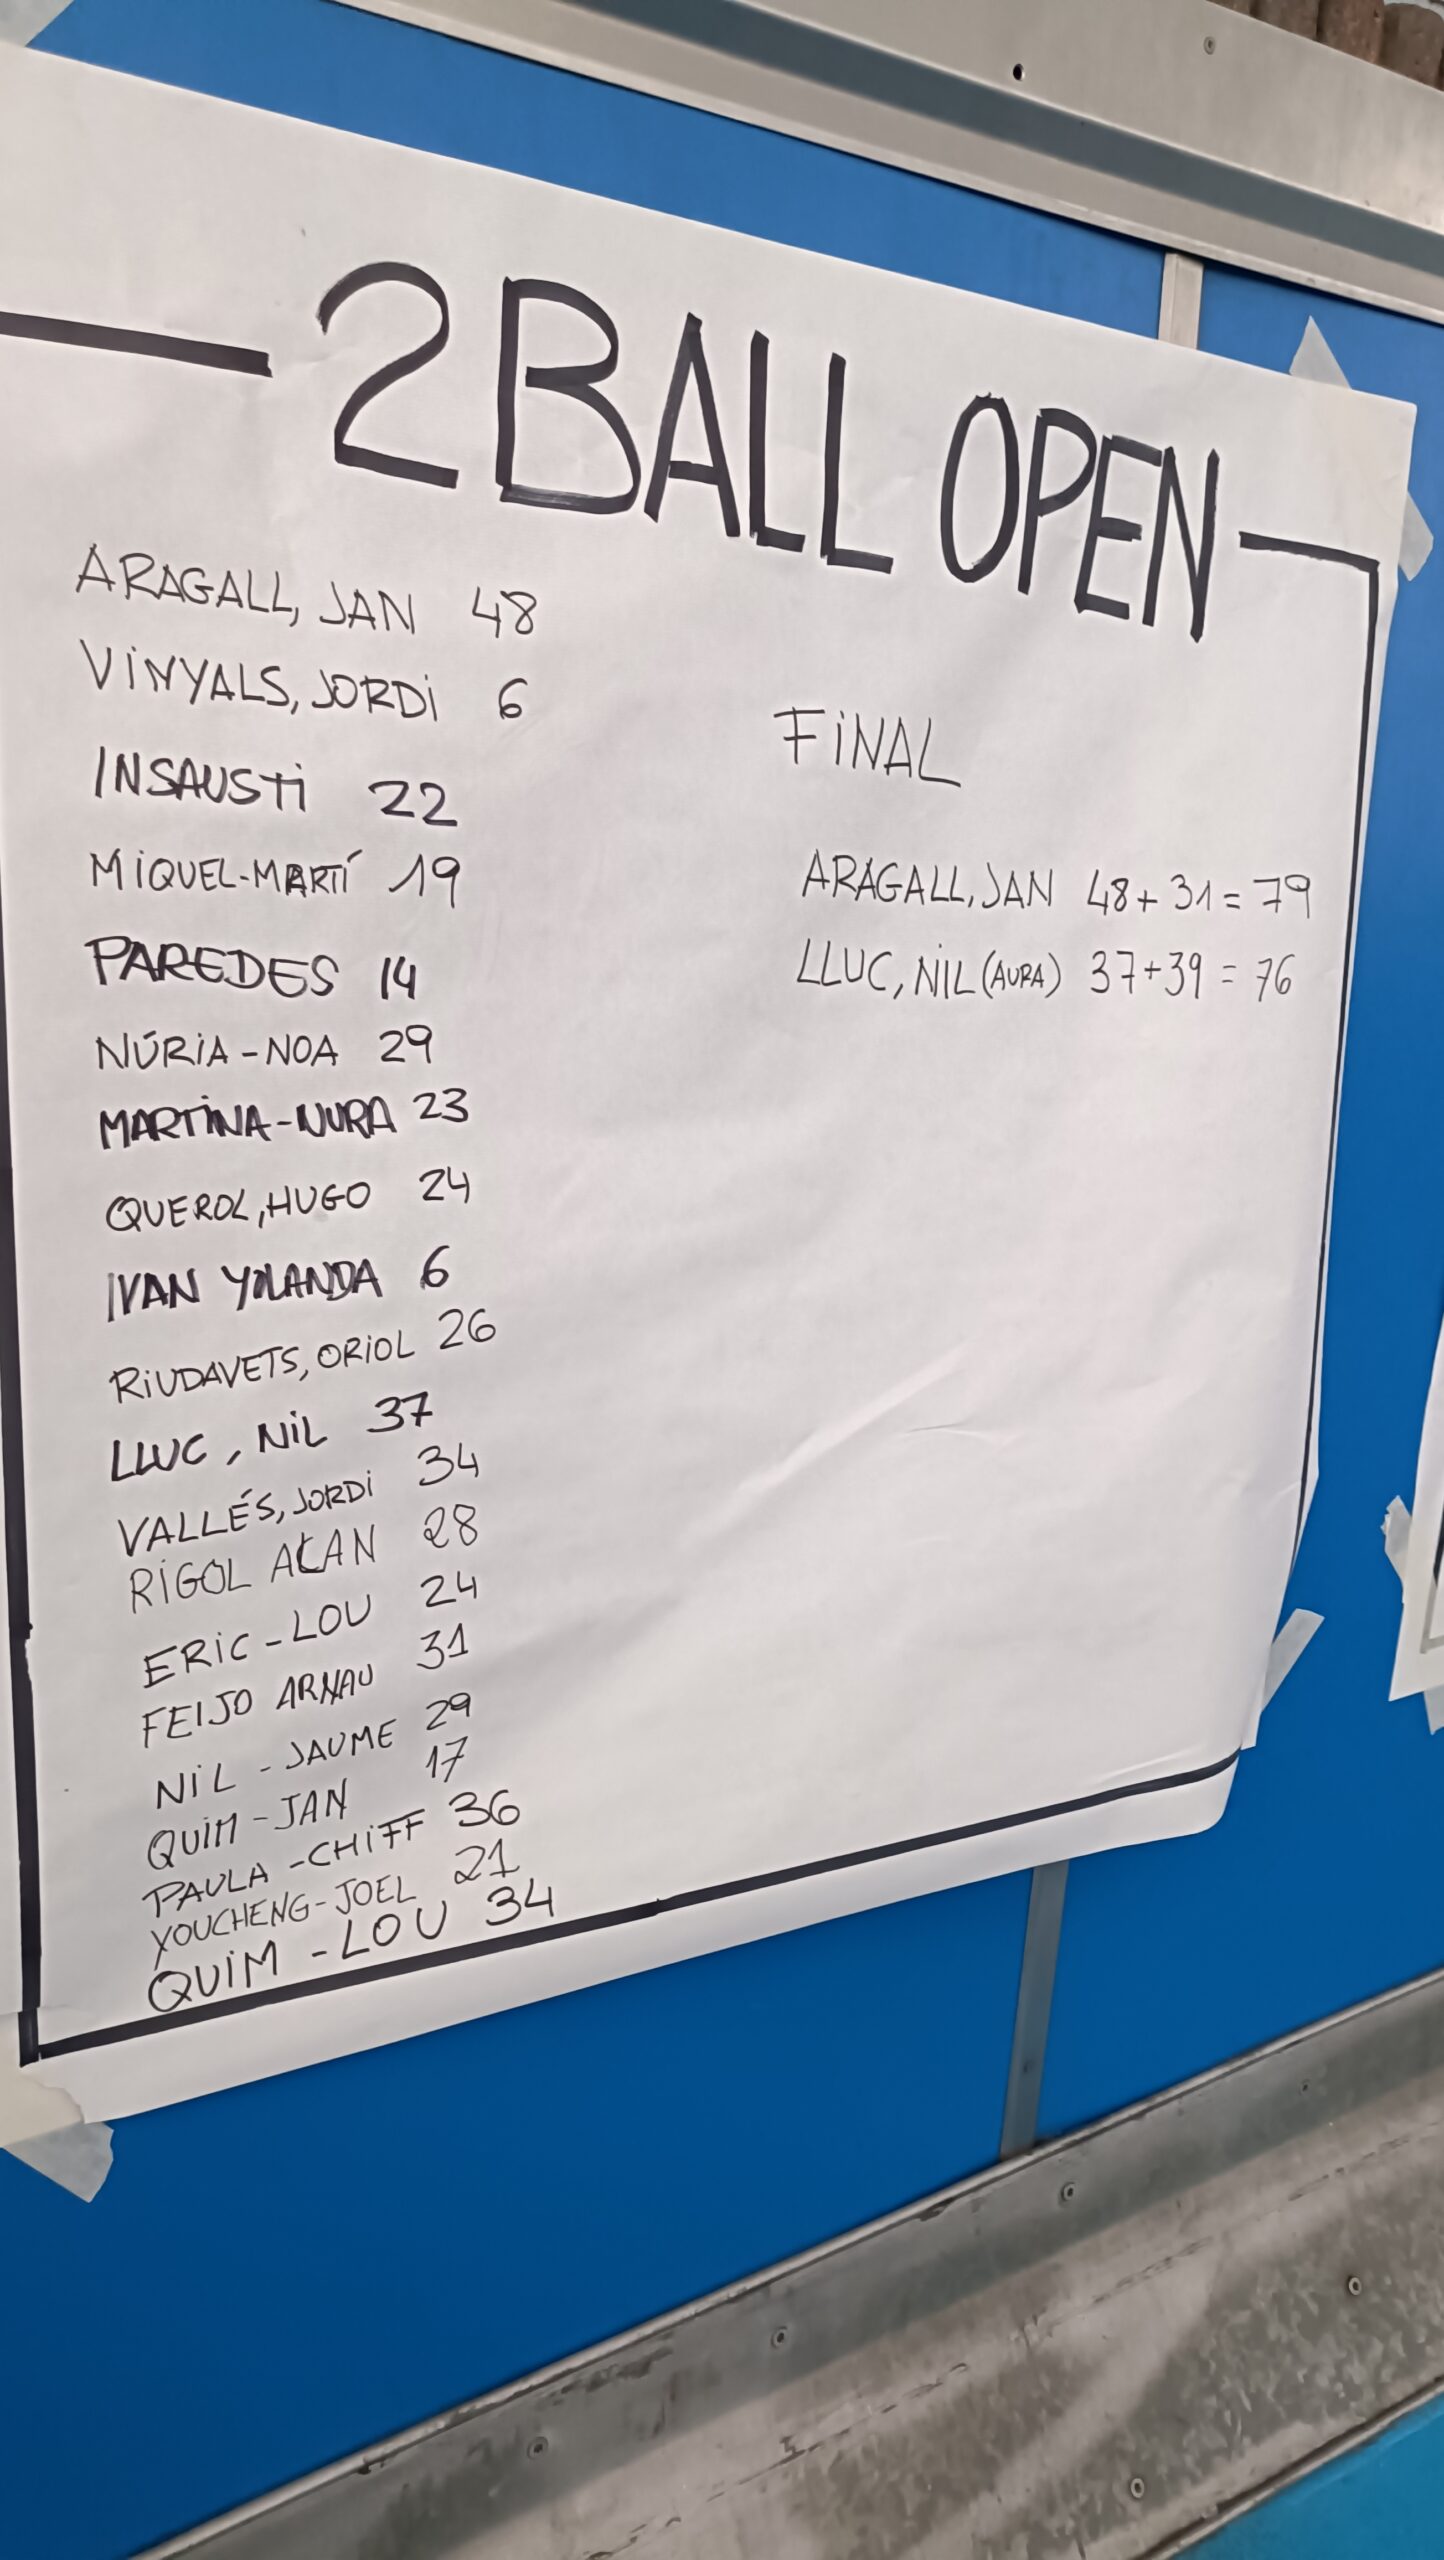 2 BALL OPEN
ARAGALL, JAN 48
VINYALS, JORDI 6
INSAUSTI 22
MIQUEL-MARTÍ 19
PAREDES 14
NÚRIA-NOA 29
MARTINA-NURA 23
QUEROL, HUGO 24
IVAN YOLANDA 6
RIUDAVETS, ORIOL 26
LLUC, NIL 37
VALLÉS, JORDI 34
RIGOL ALAN 28
ERIC-LOU 24
FEIJO ARNAU 31
NIL - JAUME 29
QUIM-JAN 17
PAULA-CHIFF 36
YOUCHENG-JOEL 21
QUIM-LOU 34
FINAL
ARAGALL, JAN 48+31=79
LLUC, NIL (AURA) 37+39=76